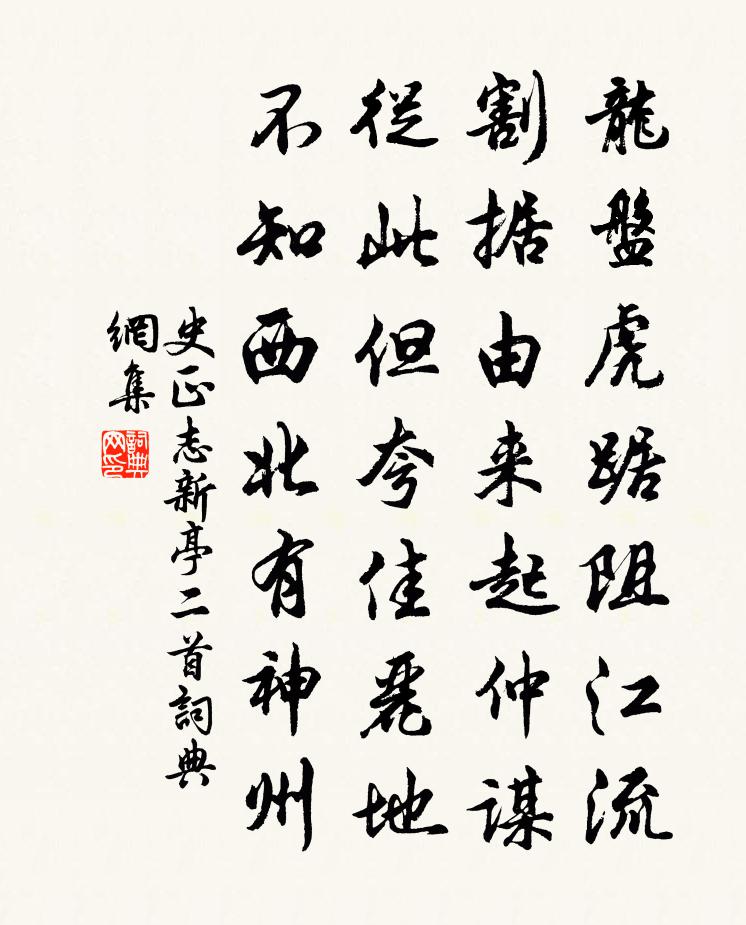 龍盤虎踞阻江流
割据由来起仲謀
從此但夸佳麗地
不知西北有神州
史正志新亭二首詞典
網集
詞典
网印